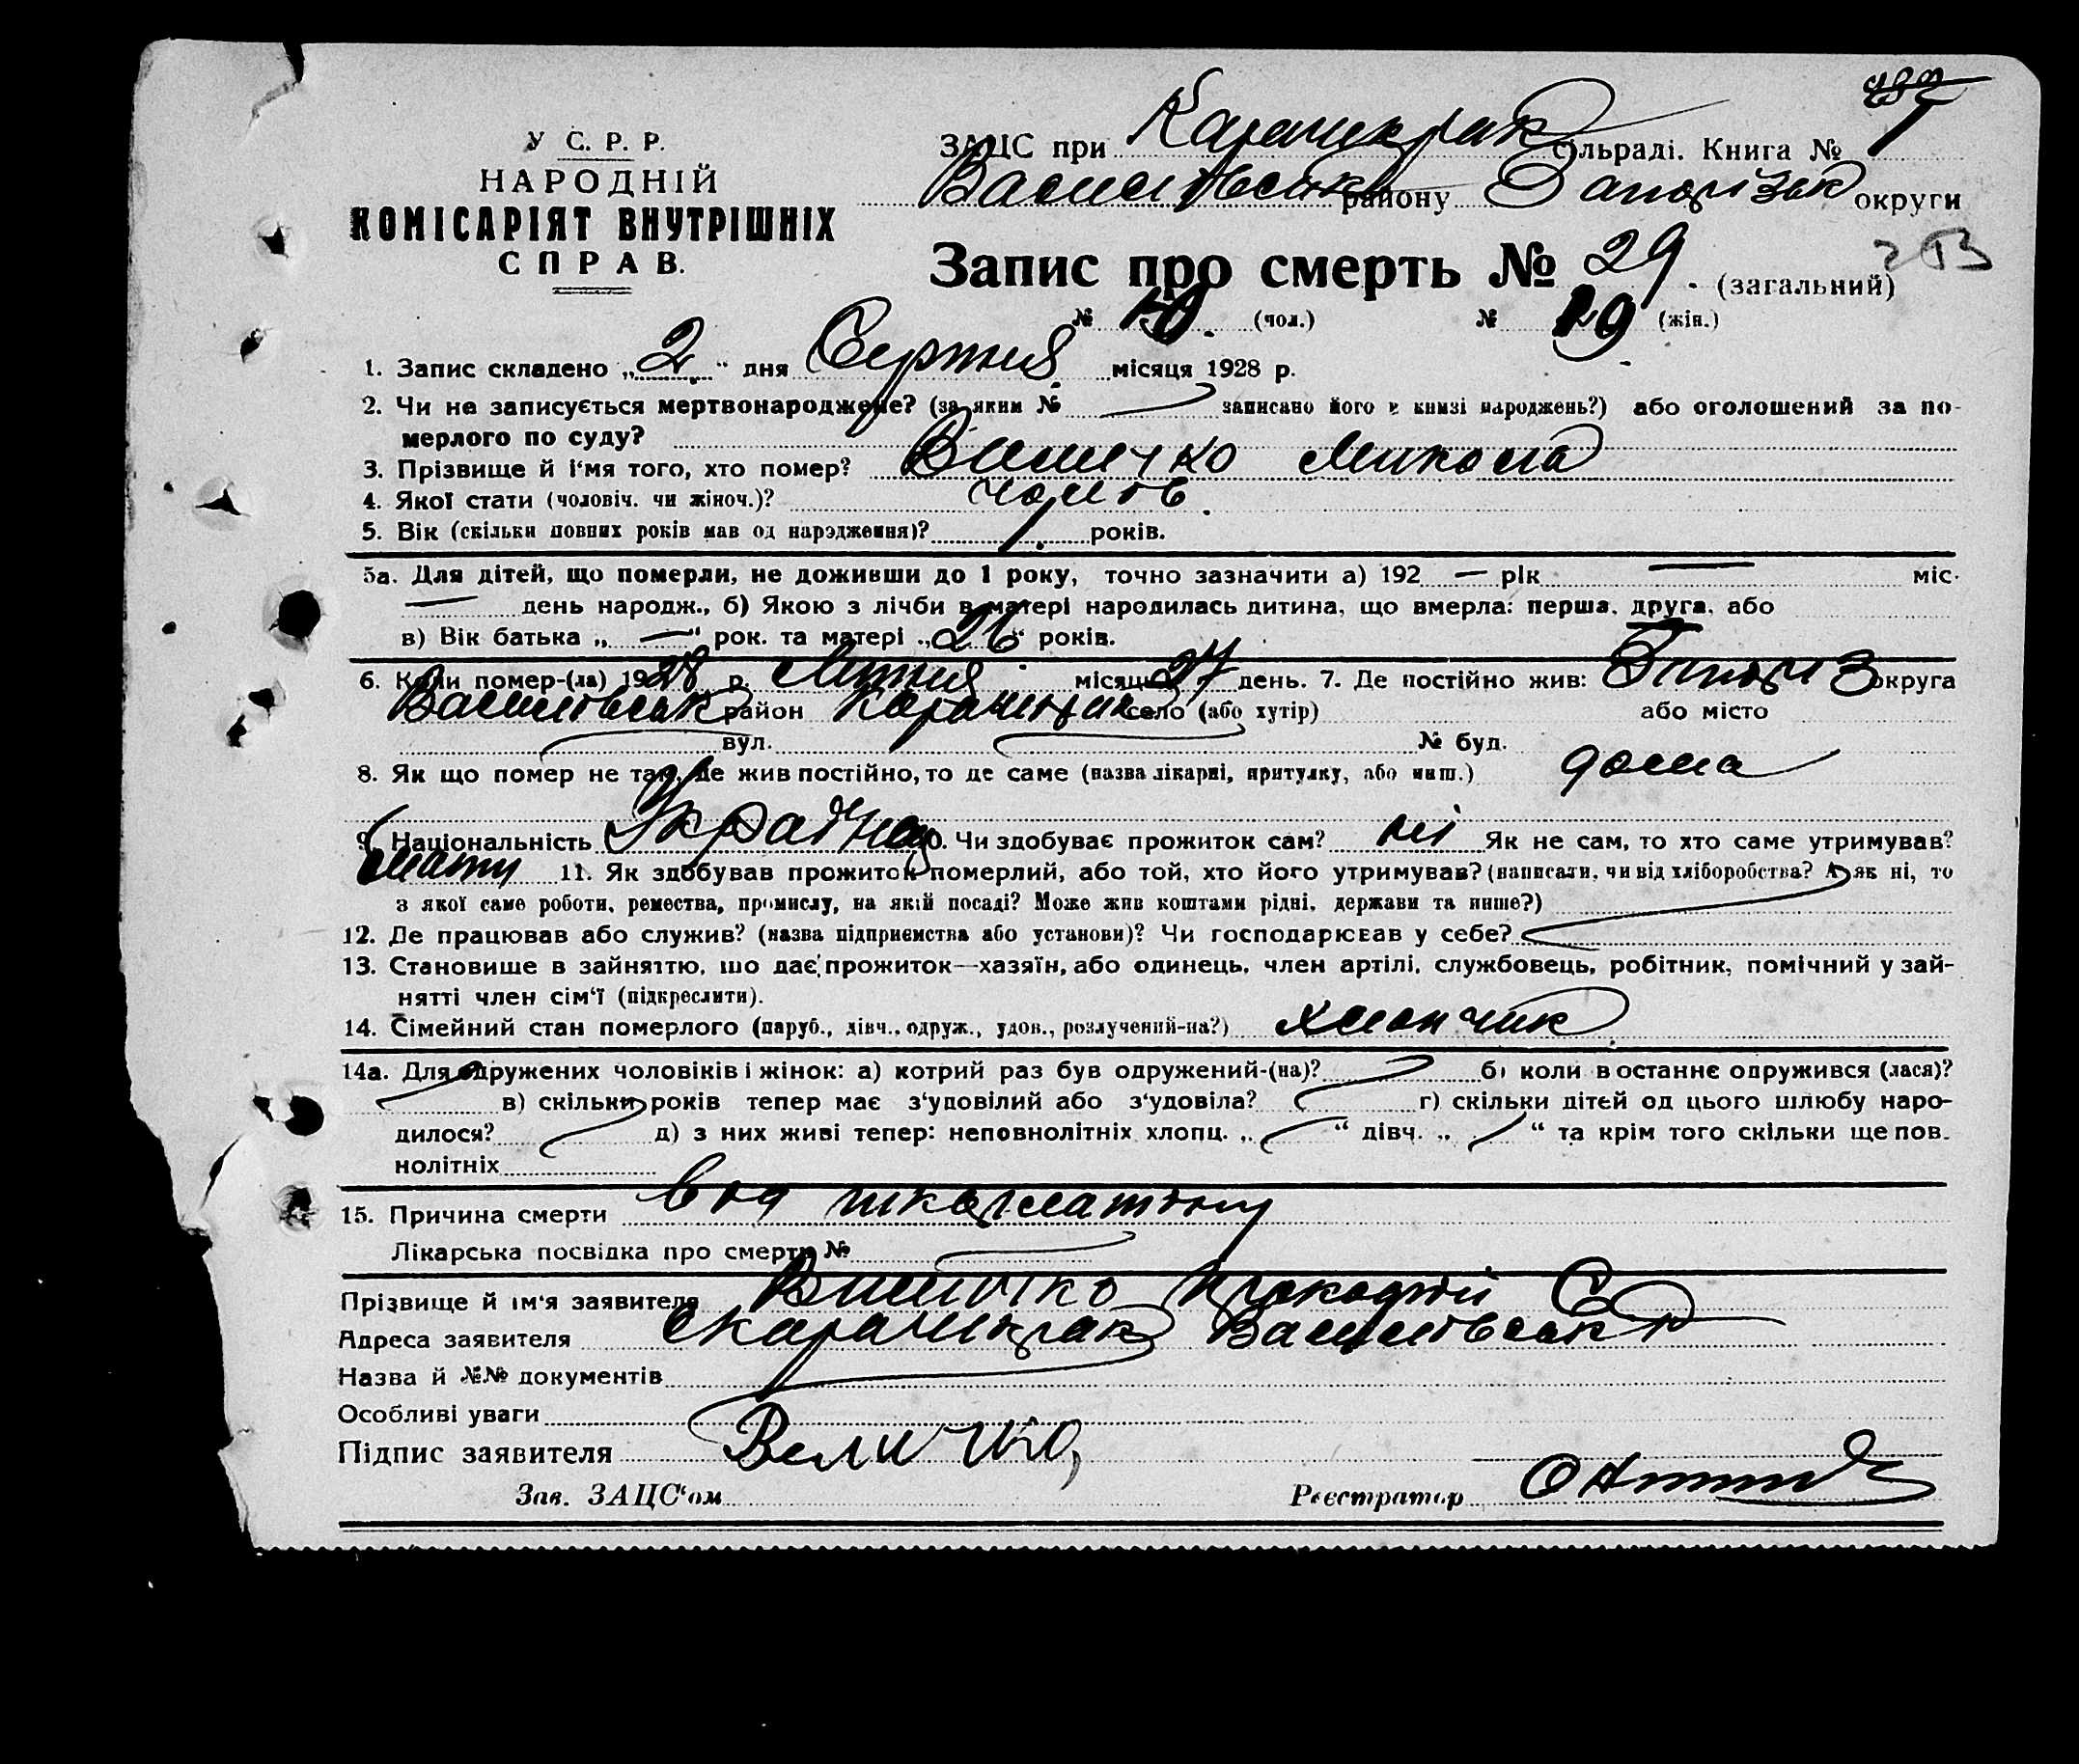 У С. Р. Р.
НАРОДНІЙ
КОМІСАРІЯТ ВНУТРІШНІХ
СПРАВ.
ЗАЦС при Карачикрак сільраді. Книга № 1
Василівськ району Запорізьк округи
Запис про смерть № 29 (загальний)
№ 10. (чол.) № 19 (жін.)
1. Запис складено „2“ дня Серпня місяця 1928 р.
2. Чи не записується мертвонароджене? (за яким № записано його в книзі народжень?) або оголошений за по-
мерлого по суду?
3. Прізвище й і‘мя того, хто помер? Величко Микола
4. Якої стати (чоловіч. чи жіноч.)? чолов.
5. Вік (скільки повних років мав од народження)? 1. років.
5а. Для дітей, що померли, не доживши до 1 року, точно зазначити а) 192 — рік — міс.
— день народж., б) Якою з лічби в матері народилась дитина, що вмерла: перша, друга, або
в) Вік батька „—“ рок. та матері „26“ років.
6. Коли помер-(ла) 1928 р. Липня місяця 27 день. 7. Де постійно жив: Запоріз округа
Василівськ район Карачикрак село (або хутір) або місто
вул. № буд.
8. Як що помер не там, де жив постійно, то де саме (назва лікарні, притулку, або инш.) дома
9. Національність Україн 10. Чи здобуває прожиток сам? ні Як не сам, то хто саме утримував?
мати 11. Як здобував прожиток померлий, або той, хто його утримував? (написати, чи від хліборобства? А як ні, то
з якої саме роботи, ремества, промислу, на якій посаді? Може жив коштами рідні, держави та инше?)
12. Де працював або служив? (назва підприємства або установи)? Чи господарював у себе?
13. Становище в зайняттю, що дає прожиток—хазяїн, або одинець, член артілі, службовець, робітник, помічний у зай-
нятті член сім‘ї (підкреслити).
14. Сімейний стан померлого (паруб., дівч., одруж., удов., розлучений-на?) хлопчик
14а. Для одружених чоловіків і жінок: а) котрий раз був одружений-(на)? б) коли востаннє одружився (лася)?
в) скільки років тепер має з‘удовілий або з‘удовіла? г) скільки дітей од цього шлюбу наро-
дилося? д) з них живі тепер: неповнолітніх хлопц. „ “ дівч. „ “ та крім того скільки ще пов.
нолітніх
15. Причина смерти від шкарлатини
Лікарська посвідка про смерть №
Прізвище й ім‘я заявителя Величко
Адреса заявителя с Карачикрак Василівськ р
Назва й №№ документів
Особливі уваги
Підпис заявителя Величко,
Зав. ЗАЦС‘ом Реєстратор